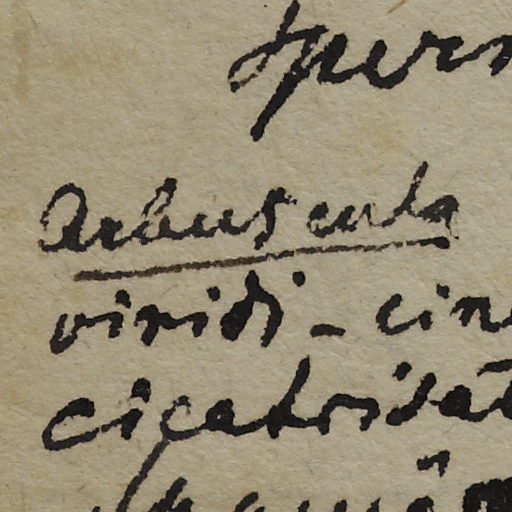 sper
Arbuscula
viridi-cin
cicatrisat